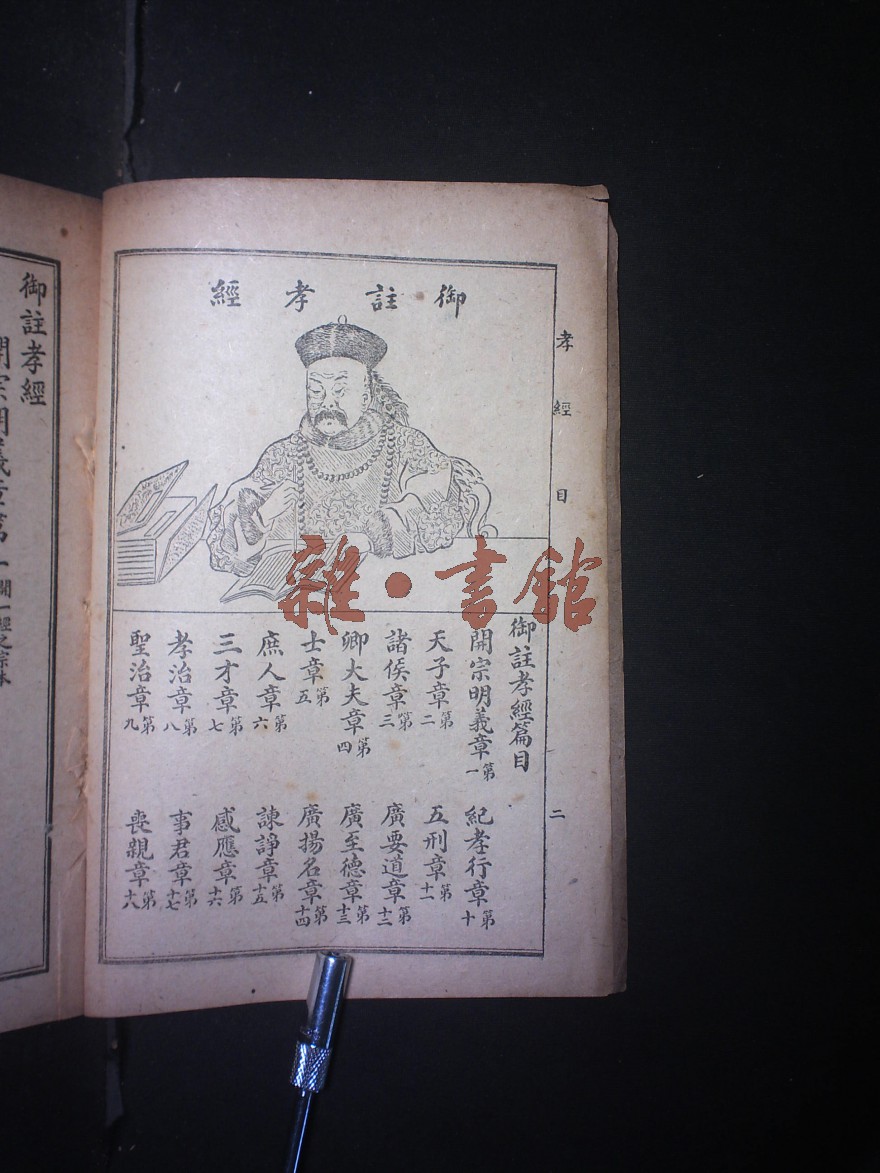 御註孝經
孝經目
二
御註孝經篇目
開宗明義章第一
天子章第二
諸侯章第三
卿大夫章第四
士章第五
庶人章第六
三才章第七
孝治章第八
聖治章第九
紀孝行章第十
五刑章第十一
廣要道章第十二
廣至德章第十三
廣揚名章第十四
諫諍章第十五
感應章第十六
事君章第十七
喪親章第十八
御註孝經
開宗明義章第一 開一經之宗本
雜·書館